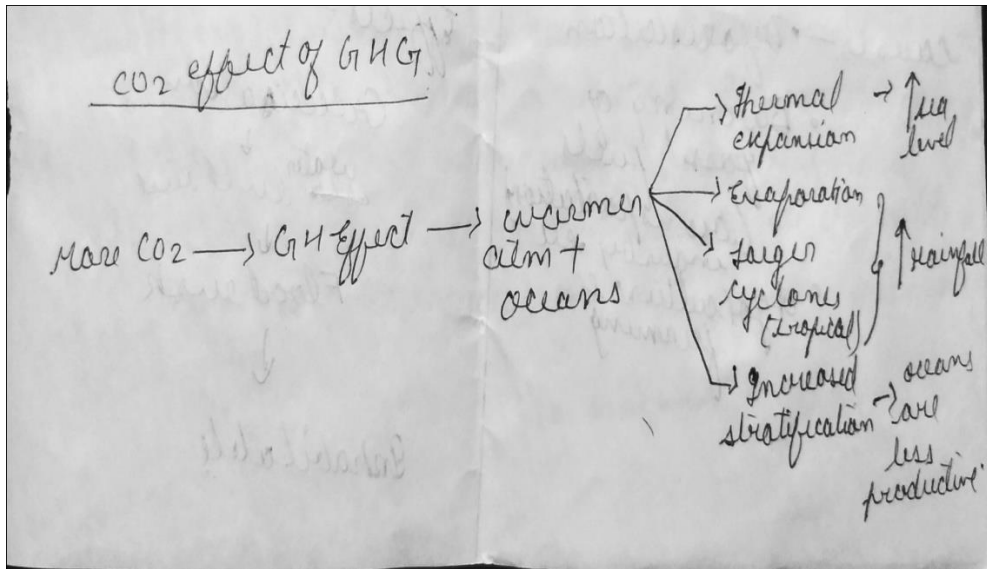 CO2 effect of GHG
More CO2 → GH Effect → warmer
atm +
oceans
→ Thermal
expansion
→ ↑ sea
level
→ Evaporation
→ Larger
cyclones
(tropical)
↑ rainfall
→ Increased
stratification
→ oceans
are
less
productive